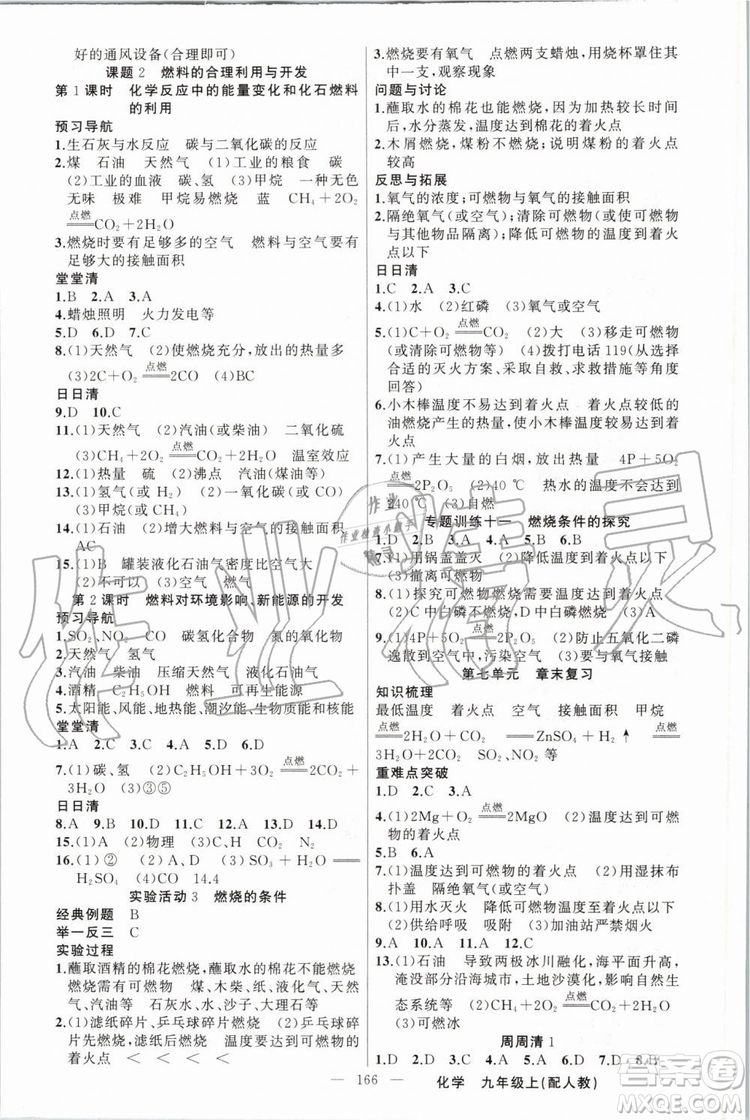 好的通风设备(合理即可)
课题2 燃料的合理利用与开发
第1课时 化学反应中的能量变化和化石燃料
的利用
预习导航
1.生石灰与水反应 碳与二氧化碳的反应
2.煤 石油 天然气 (1)工业的粮食 碳
(2)工业的血液 碳、氢 (3)甲烷 一种无色
无味 甲烷易燃烧 蓝 CH₄+2O₂
点燃══CO₂+2H₂O
3.燃烧时要有足够多的空气 燃料与空气要有
足够大的接触面积
堂堂清
1.B 2.A 3.A
4.蜡烛照明 火力发电等
5.D 6.D 7.C
8.(1)天然气 (2)使燃烧充分,放出的热量多
(3)2C+O₂点燃══2CO (4)BC
日日清
9.D 10.C
11.(1)天然气 (2)汽油(或柴油) 二氧化硫
(3)CH₄+2O₂点燃══CO₂+2H₂O 温室效应
12.(1)热量 硫 (2)沸点 汽油(煤油等)
13.(1)氢气(或H₂) (2)一氧化碳(或CO)
(3)甲烷(或CH₄)
14.(1)石油 (2)增大燃料与空气的接触面积
AC
15.(1)B 罐装液化石油气密度比空气大
(2)不可以 (3)空气
第2课时 燃料对环境影响、新能源的开发
预习导航
1.SO₂、NO₂ CO 碳氢化合物 氮的氧化物
2.天然气 氢气
3.汽油 柴油 压缩天然气 液化石油气
4.酒精 (1)乙醇 (2)可再生能源
5.太阳能、风能、地热能、潮汐能、生物质能和核能
堂堂清
1.A 2.C 3.C 4.A 5.D 6.D
7.(1)碳、氢 (2)C₂H₅OH+3O₂点燃══2CO₂
+3H₂O (3)①③⑤
日日清
8.A 9.B 10.D 11.D 12.D 13.C 14.D
15.(1)A (2)物理 (3)H₂ CO N₂
16.(1)② (2)A (3)D (3)SO₃+H₂O══
H₂SO₄ (4)CO 14.4
实验活动3 燃烧的条件
经典例题 B
举一反三 C
实验过程
1.蘸取酒精的棉花燃烧,蘸取水的棉花不燃烧
物质燃烧需要可燃物 煤、木柴、纸、液化石油
气、天然气等 石灰水、水、沙子、大理石等
2.(1)滤纸碎片、乒乓球碎片 (2)乒乓球碎片
先燃烧,滤纸碎片后燃烧 温度要达到可燃物的
着火点 < < < <
3.燃烧要有氧气 点燃两支蜡烛,用烧杯罩住其
中一支,观察现象
问题与讨论
1.蘸取水的棉花也能燃烧,因为在加热时间较长
后,水分蒸发了,温度达到了棉花的着火点
2.木屑燃烧,煤粉不燃烧,说明煤粉的着火点
较高
反思与拓展
1.氧气的浓度;可燃物与氧气的接触面积
2.隔绝氧气(或空气);清除可燃物(或使可燃物
与其他物品隔离);使可燃物的温度降到着火
点以下
日日清
1.C 2.A 3.C
4.(1)水 (2)红磷 (3)氧气或空气
5.(1)C+O₂点燃══CO₂ (2)大 (3)移走可燃物
(或清除可燃物) (4)拨打电话119(从选择
合适的灭火方案、采取自救措施等角度
回答)
6.小木棒温度不易达到着火点 着火点较低的
油燃烧产生的热量,使木棒达到着火点
7.(1)产生大量的白烟,放出热 4P+5O₂
点燃══2P₂O₅ (2)40℃ 热水的温度不会达到
240℃ (3)自燃
专题训练十一 燃烧条件的探究
1.D 2.A 3.D 4.D 5.B 6.B
7.(1)用锅盖盖灭 (2)可燃物着火点以下
(3)撤离可燃物
8.(1)探究可燃物燃烧需要温度达到着火点
(2)C中白磷燃烧,不中白磷燃烧 (3)A
9.(1)4P+5O₂点燃══2P₂O₅ (2)防止五氧化二磷
逸散到空气中,污染空气 (3)与氧气接触
第七单元 章末复习
知识梳理
最低温度 着火点 空气 接触面积 甲烷
点燃══2H₂O+CO₂ ZnSO₄+H₂↑ 点燃══
3H₂O+2CO₂ SO₂、NO₂等
重难点突破
1.D 2.A 3.C
4.(1)2Mg+O₂点燃══2MgO (2)温度达到可燃
物的着火点
5.B 6.A
7.(1)温度达到可燃物的着火点 (2)用湿抹布
扑盖 隔绝氧气(或空气)
8.(1)用水灭火 降低温度到可燃物着火点以下
(2)供给呼吸 附吸 (3)加油站严禁烟火
9.(1)石油 导致两极冰川融化,海平面升高,
淹没部分沿海城市,土地沙漠化,影响自然生
态系统等 (2)CH₄+2O₂点燃══CO₂+2H₂O
(3)可燃冰
周周清1
1.D 2.D 3.D 4.C 5.B 6.D 7.D 8.B
166 化学 九年级上(配人教)
作业精灵
作业
作业检查小助手
精灵
答案圈
MXQE.COM